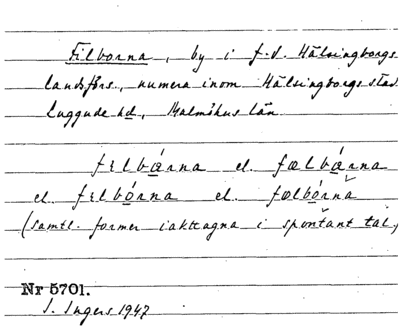 Filborna, by i f.d. Hälsingborgs
landsförs., numera inom Hälsingborgs stad.
Luggude hd, Malmöhus län.
fɛlbárna el. fælbárna
el. fɛlbórna el. fælbórna
(samtl. former iakttagna i spontant tal,
Nr 5701.
I. Ingers 1947